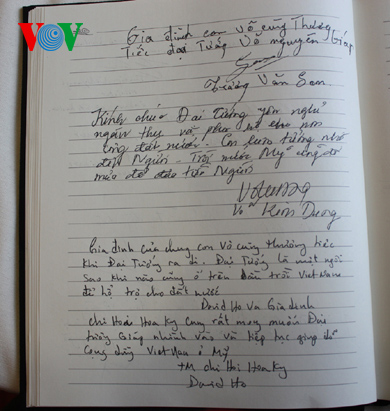 VOV
Gia đình con vô cùng thương
tiếc đại tướng Võ nguyên Giáp
Trương Văn Son
Kính chúc Đại tướng yên nghỉ
ngàn thu và phù hộ cho non
sông đất nước. Con luôn tưởng nhớ
đến Người. Trời nước Mỹ cũng đổ
mưa để đưa tiễn Người
Võ Kim Dương
Gia đình của chúng con vô cùng thương tiếc
khi Đại Tướng ra đi. Đại Tướng là một ngôi
sao khi nào cũng ở trên bầu trời Viet Nam
để hỗ trợ cho đất nước
David Ho và Gia đình
chi Hoa Ky cung rất mong muốn Đại
tướng Giáp nhanh vào và tiếp tục giúp đỡ
Cong đồng Viet Nam ở Mỹ
TM chi Hoi Hoa Ky
David Ho